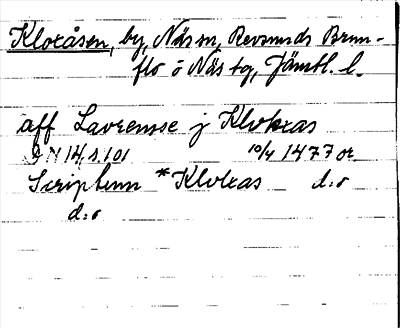 Kloxåsen, by, Näs sn, Revsunds Brun-
flo o Näs tg, Jämtl. l.
aff Lavrensse j Klokxas
DN 14, s. 101 10/4 1477 or
Scriptum *Klokxas d:o
d:o